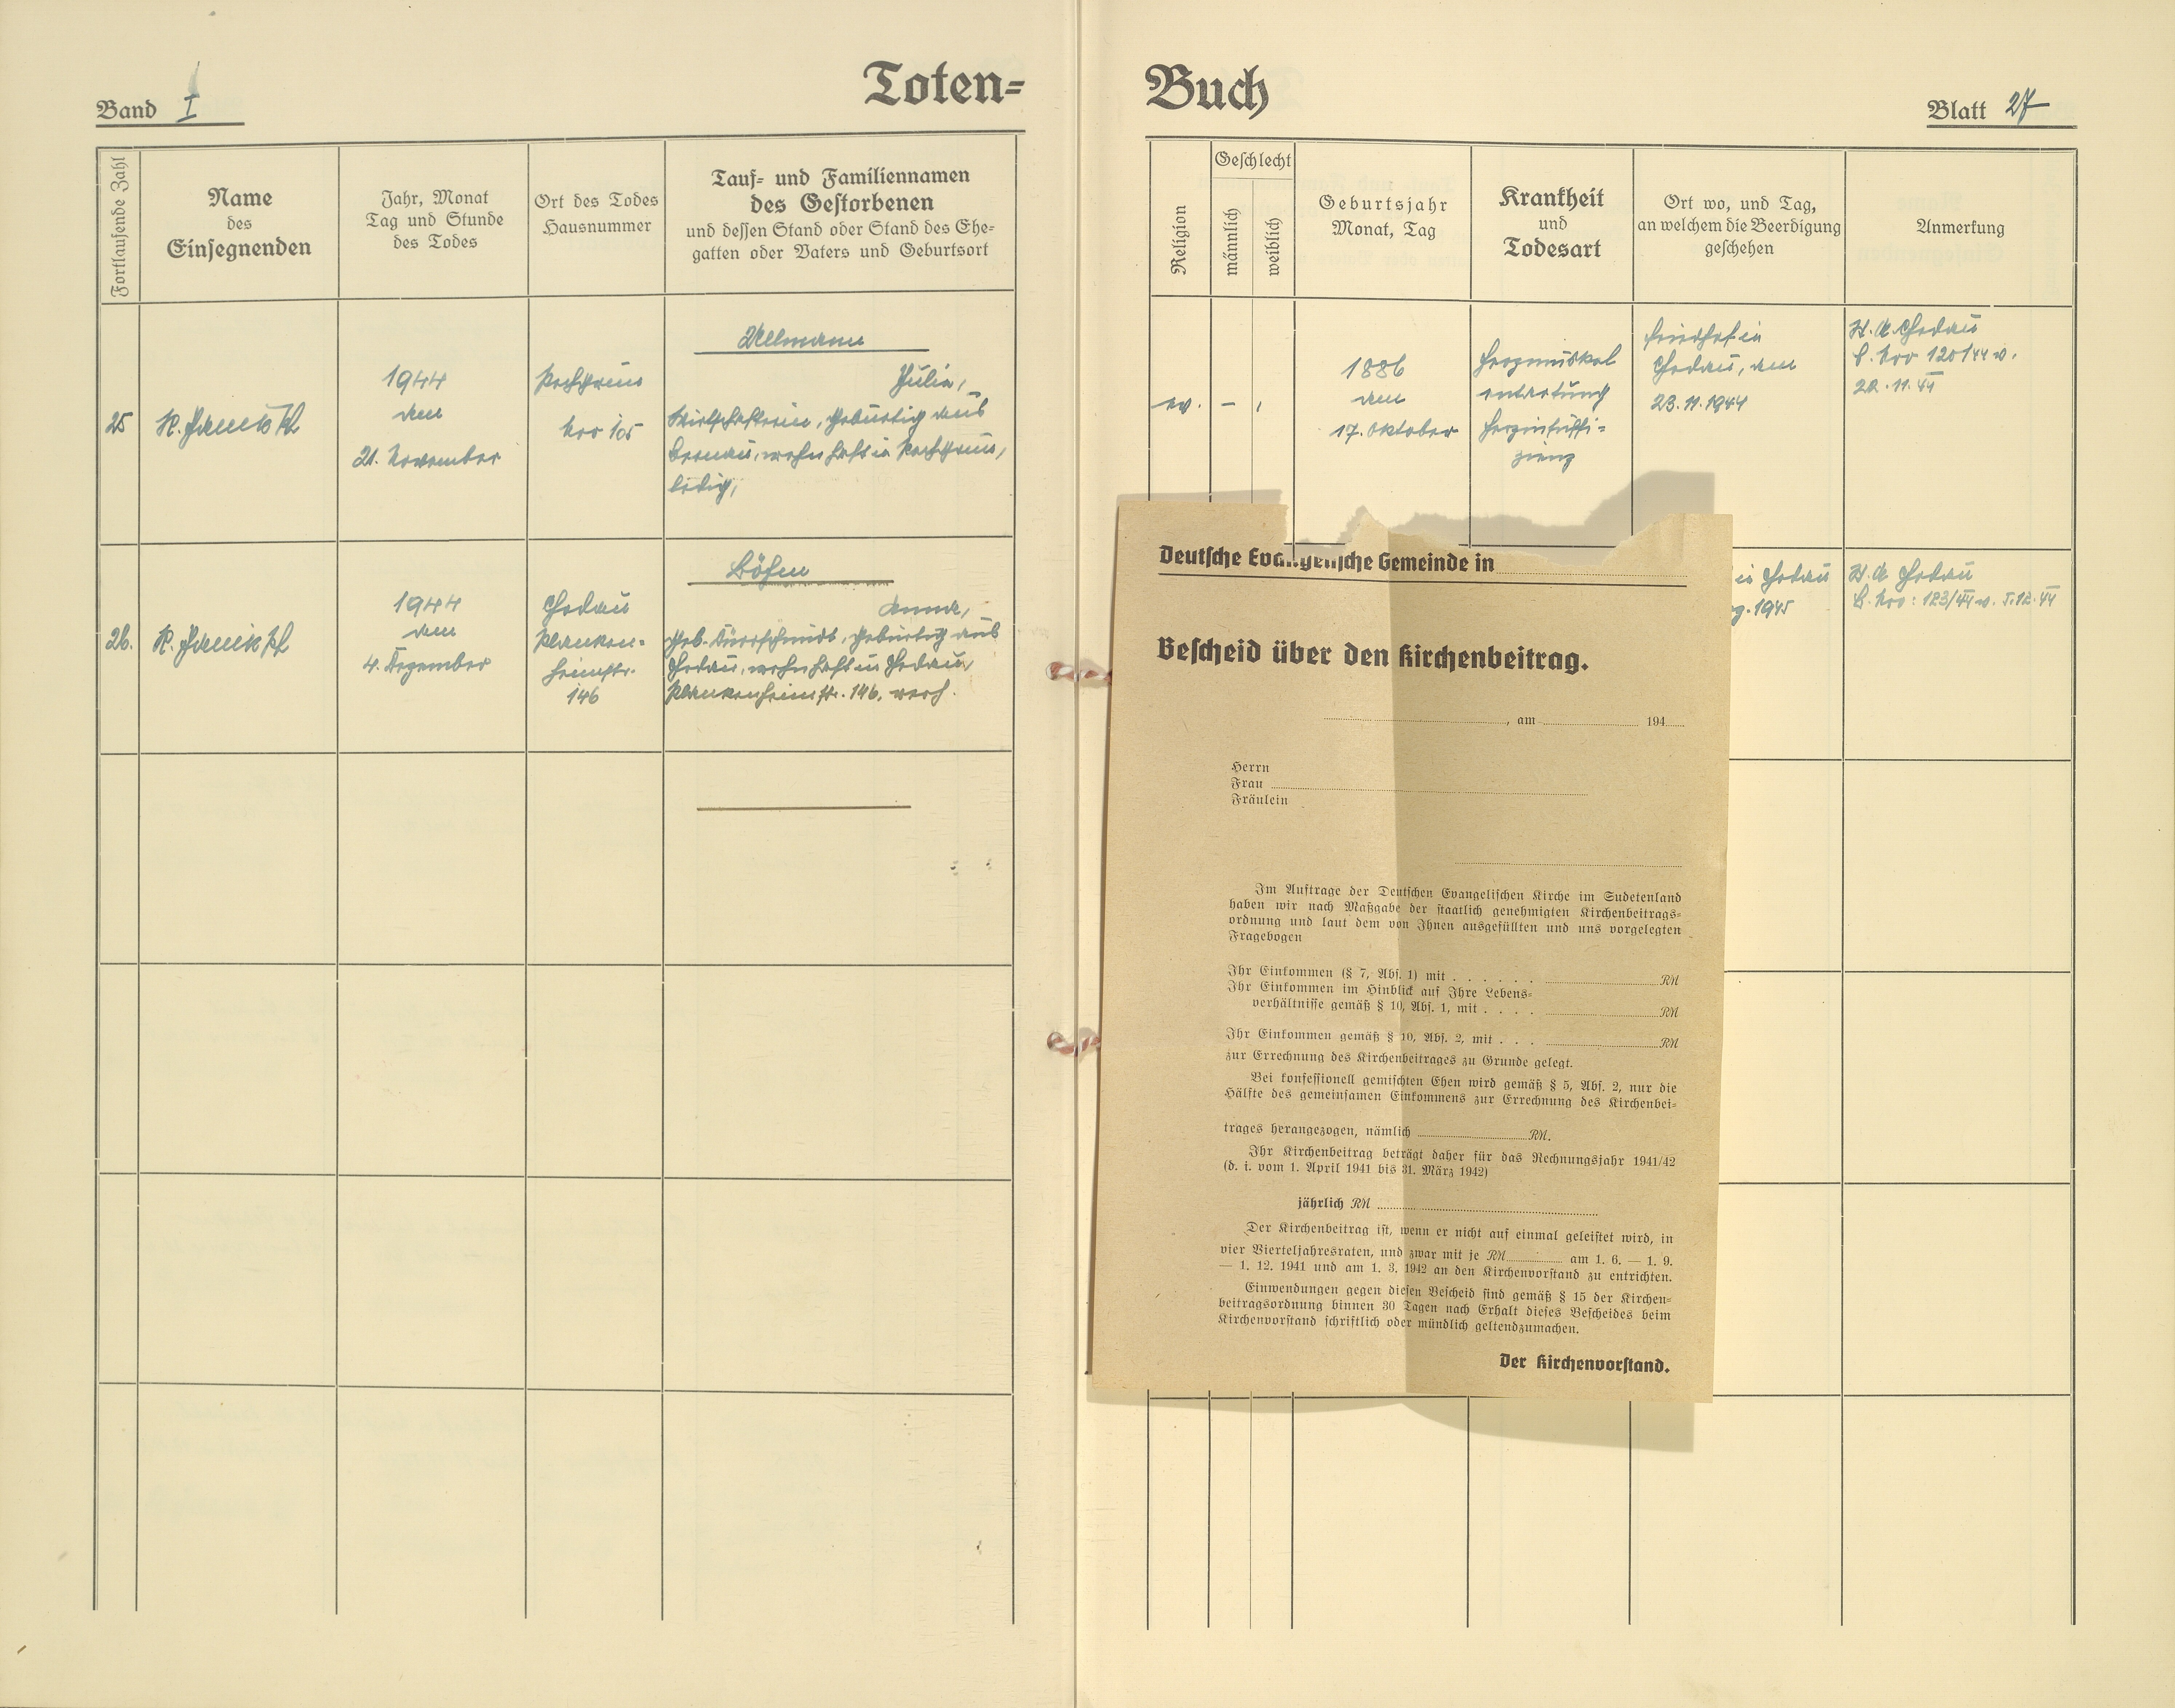 Toten=
Band I
Fortlaufende Zahl
Name
des
Einsegnenden
Jahr, Monat
Tag und Stunde
des Todes
Ort des Todes
Hausnummer
Tauf= und Familiennamen
des Gestorbenen
und dessen Stand oder Stand des Ehe=
gatten oder Vaters und Geburtsort
25
1944
den
21. November
Nro 105
Ullmann
Julia,
gebürtig aus
wohnhaft in
ledig,
26.
1944
den
4. Dezember
Chodau
146
Anna,
geb. gebürtig aus
Chodau, wohnhaft in Chodau,
146, verh.
Buch
Blatt 27
Religion
Geschlecht
männlich
weiblich
Geburtsjahr
Monat, Tag
Krankheit
und
Todesart
Ort wo, und Tag,
an welchem die Beerdigung
geschehen
Anmerkung
ev.
1886
den
17. Oktober
Herzmuskel
entartung
Herzinsuffi=
zienz
Friedhof in
Chodau, am
23.11.1944
Chodau
Nro 120/44 v.
22.11.44
in Chodau
1945
Chodau
Nro: 123/44 v. 5.12.44
Deutsche Evangelische Gemeinde in
Bescheid über den Kirchenbeitrag.
, am 194
Herrn
Frau
Fräulein
Im Auftrage der Deutschen Evangelischen Kirche im Sudetenland
haben wir nach Maßgabe der staatlich genehmigten Kirchenbeitrags=
ordnung und laut dem von Ihnen ausgefüllten und uns vorgelegten
Fragebogen
Ihr Einkommen (§ 7, Abs. 1) mit . . . . . . RM
Ihr Einkommen im Hinblick auf Ihre Lebens=
verhältnisse gemäß § 10, Abs. 1, mit . . . . RM
Ihr Einkommen gemäß § 10, Abs. 2, mit . . . RM
zur Errechnung des Kirchenbeitrages zu Grunde gelegt.
Bei konfessionell gemischten Ehen wird gemäß § 5, Abs. 2, nur die
Hälfte des gemeinsamen Einkommens zur Errechnung des Kirchenbei=
trages herangezogen, nämlich RM.
Ihr Kirchenbeitrag beträgt daher für das Rechnungsjahr 1941/42
(d. i. vom 1. April 1941 bis 31. März 1942)
jährlich RM
Der Kirchenbeitrag ist, wenn er nicht auf einmal geleistet wird, in
vier Vierteljahresraten, und zwar mit je RM am 1. 6. — 1. 9.
— 1. 12. 1941 und am 1. 3. 1942 an den Kirchenvorstand zu entrichten.
Einwendungen gegen diesen Bescheid sind gemäß § 15 der Kirchen=
beitragsordnung binnen 30 Tagen nach Erhalt dieses Bescheides beim
Kirchenvorstand schriftlich oder mündlich geltendzumachen.
Der Kirchenvorstand.